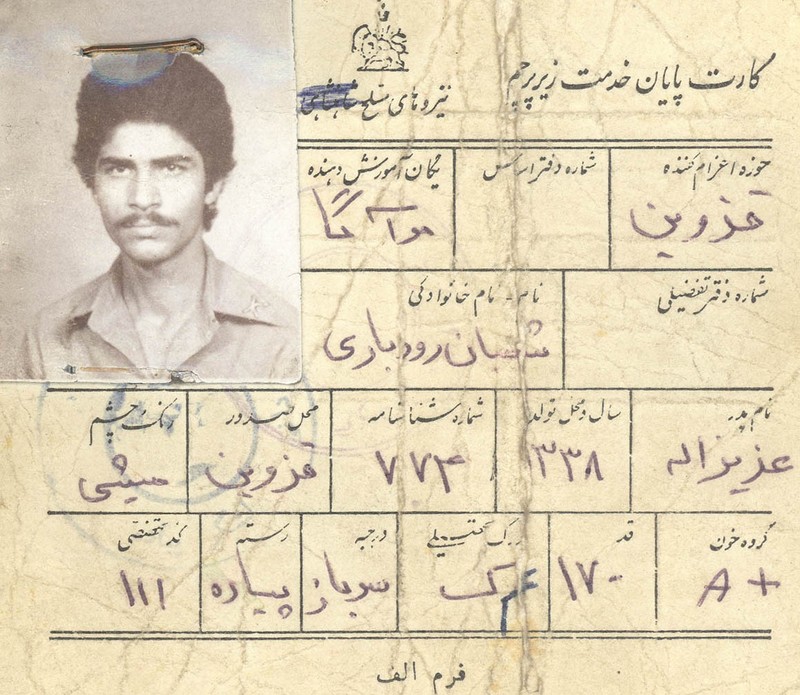 کارت پایان خدمت زیر پرچم
نیروهای مسلح شاهنشاهی
حوزه اعزام کننده
شماره دفتر اساسی
یگان آموزش دهنده
قزوین
شماره دفتر تفضیلی
نام - نام خانوادگی
شعبان رودباری
نام پدر
سال و محل تولد
شماره شناسنامه
محل صدور
رنگ چشم
عزیزاله
۱۳۳۸
۷۷۴
قزوین
میشی
گروه خون
قد
مدرک تحصیلی
درجه
رسته
کد تخصصی
A+
۱۷۰
سرباز
پیاده
۱۱۱
فرم الف